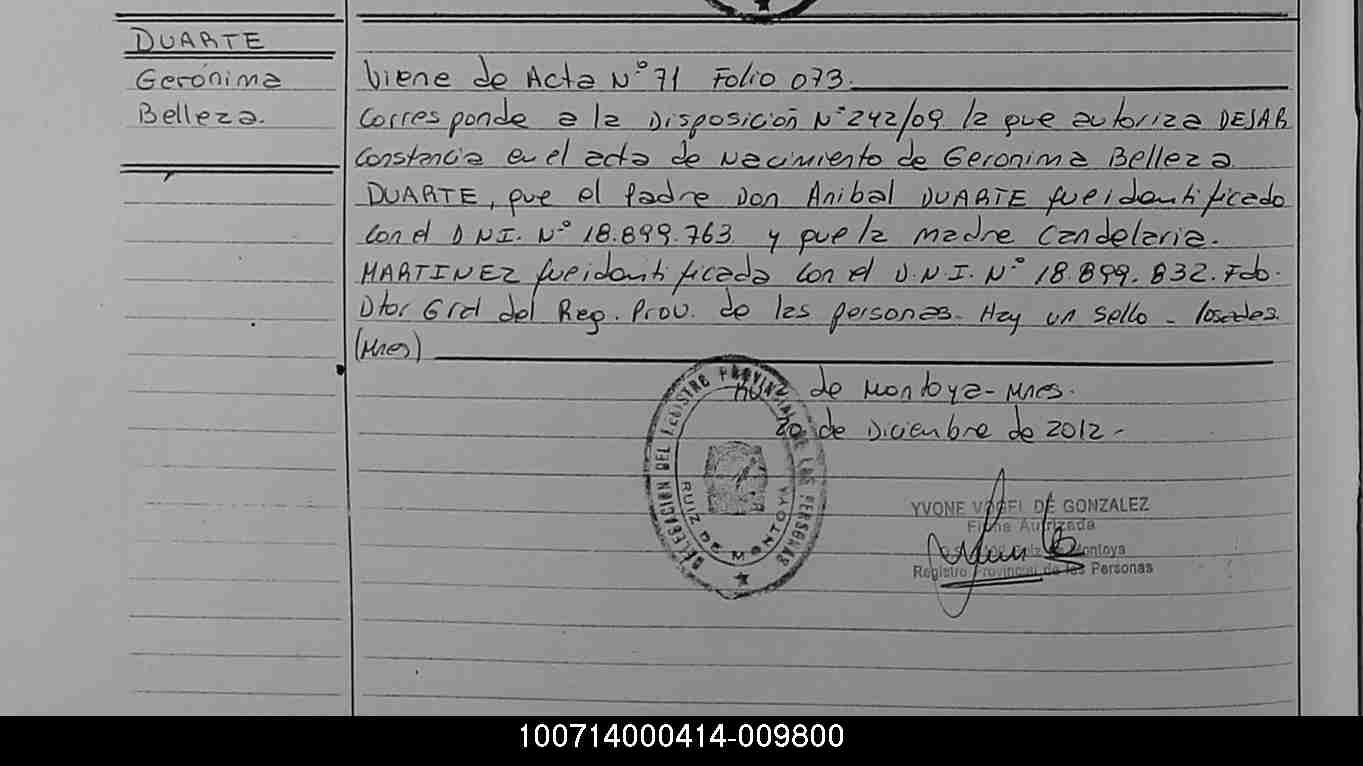 DUARTE
Gerónima
Belleza.
Viene de Acta N° 71 Folio 073.
Corresponde a la Disposición N° 242/09 la que autoriza DEJAR
Constancia en el acta de Nacimiento de Geronima Belleza
DUARTE, que el Padre Don Anibal DUARTE fue identificado
con el DNI. N° 18.899.763 y que la madre Candelaria.
MARTINEZ fue identificada con el D.N.I. N° 18.899.832. Fdo.
Dtor Gral del Reg. Prov. de las personas. Hay un sello - Posadas.
(Mnes)
de Montoya - Mnes.
20 de Diciembre de 2012 -
DELEGACION DEL REGISTRO PROVINCIAL DE LAS PERSONAS
RUIZ DE MONTOYA
YVONE VOGEL DE GONZALEZ
Firma Autrizada
Montoya
Registro Provincial de las Personas
100714000414-009800